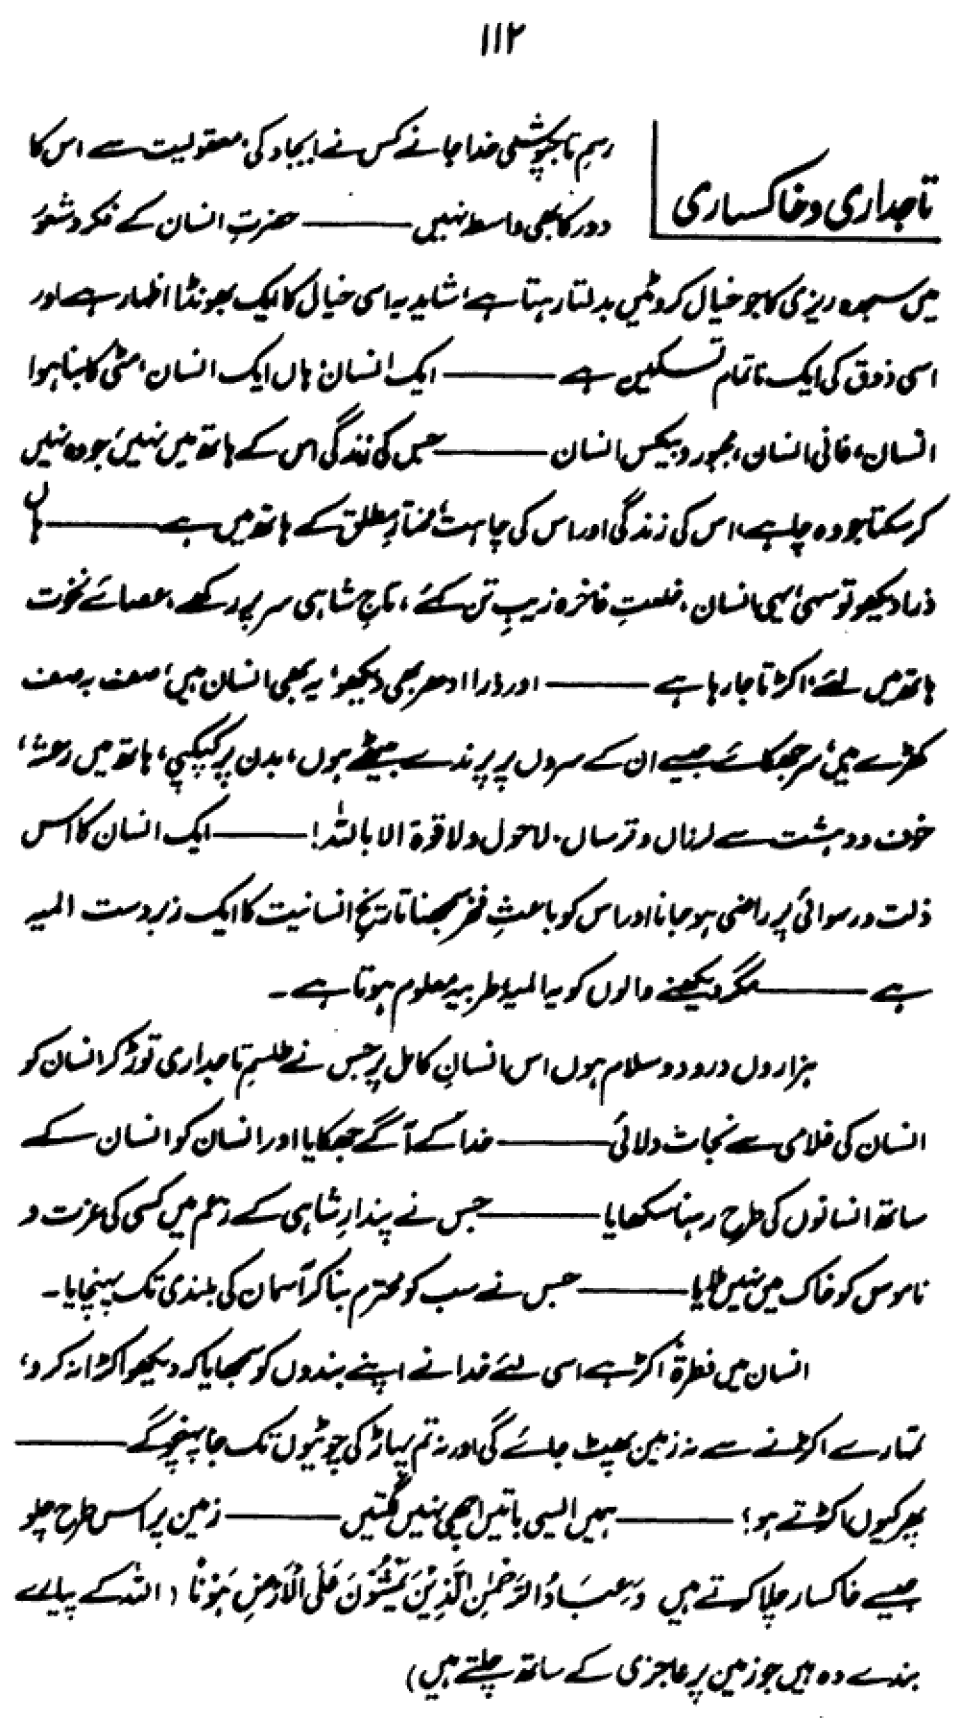 ۱۱۲
تاجداری و خاکساری
رسمِ تاجپوشی خدا جانے کس نے ایجاد کی، معقولیت سے اس کا
دور کا بھی واسطہ نہیں ——— حضرتِ انسان کے فکر و شعور
میں سجدہ ریزی کا جو خیال کروٹیں بدلتا رہتا ہے، شاید یہ اسی خیال کا ایک بھونڈا اظہار ہے اور
اسی ذوق کی ایک ناتمام تسکین ہے ——— ایک انسان، ہاں ایک انسان، مٹی کا بنا ہوا
انسان، فانی انسان، مجبور و بیکس انسان ——— جس کی زندگی اس کے ہاتھ میں نہیں، جو وہ نہیں
کر سکتا جو وہ چاہے، اس کی زندگی اور اس کی چاہت، مختارِ مطلق کے ہاتھ میں ہے ——— ہاں
ذرا دیکھو تو سہی، یہی انسان، خلعتِ فاخرہ زیبِ تن کئے، تاجِ شاہی سر پر رکھے، عصائے نخوت
ہاتھ میں لئے، اکڑتا جا رہا ہے ——— اور ذرا ادھر بھی دیکھو، یہ بھی انسان ہیں، صف بہ صف
کھڑے ہیں، سر جھکائے جیسے ان کے سروں پر پرندے بیٹھے ہوں، بدن پر کپکپی، ہاتھ میں رعشہ،
خوف و دہشت سے لرزاں و ترساں۔ لاحول ولا قوۃ الا باللہ! ——— ایک انسان کا اس
ذلت و رسوائی پر راضی ہو جانا اور اس کو باعثِ فخر سمجھنا تاریخِ انسانیت کا ایک زبردست المیہ
ہے ——— مگر دیکھنے والوں کو یہ المیہ طربیہ معلوم ہوتا ہے۔
ہزاروں درود و سلام ہوں اس انسانِ کامل پر جس نے طلسمِ تاجداری توڑ کر انسان کو
انسان کی غلامی سے نجات دلائی ——— خدا کے آگے جھکایا اور انسان کو انسان کے
ساتھ انسانوں کی طرح رہنا سکھایا ——— جس نے پندارِ شاہی کے زعم میں کسی کی عزت و
ناموس کو خاک میں نہیں ملایا ——— جس نے سب کو محترم بنا کر آسمان کی بلندی تک پہنچایا۔
انسان میں فطرۃً اکڑ ہے اسی لئے خدا نے اپنے بندوں کو سمجھایا کہ دیکھو اکڑا نہ کرو،
تمہارے اکڑنے سے نہ زمین پھٹ جائے گی اور نہ تم پہاڑ کی چوٹیوں تک جا پہنچو گے ———
پھر کیوں اکڑتے ہو؟ ——— ہمیں ایسی باتیں اچھی نہیں لگتیں ——— زمین پر اس طرح چلو
جیسے خاکسار چلا کرتے ہیں وَعِبَادُ الرَّحْمٰنِ الَّذِیْنَ یَمْشُوْنَ عَلَی الْاَرْضِ هَوْنًا (اللہ کے پیارے
بندے وہ ہیں جو زمین پر عاجزی کے ساتھ چلتے ہیں)